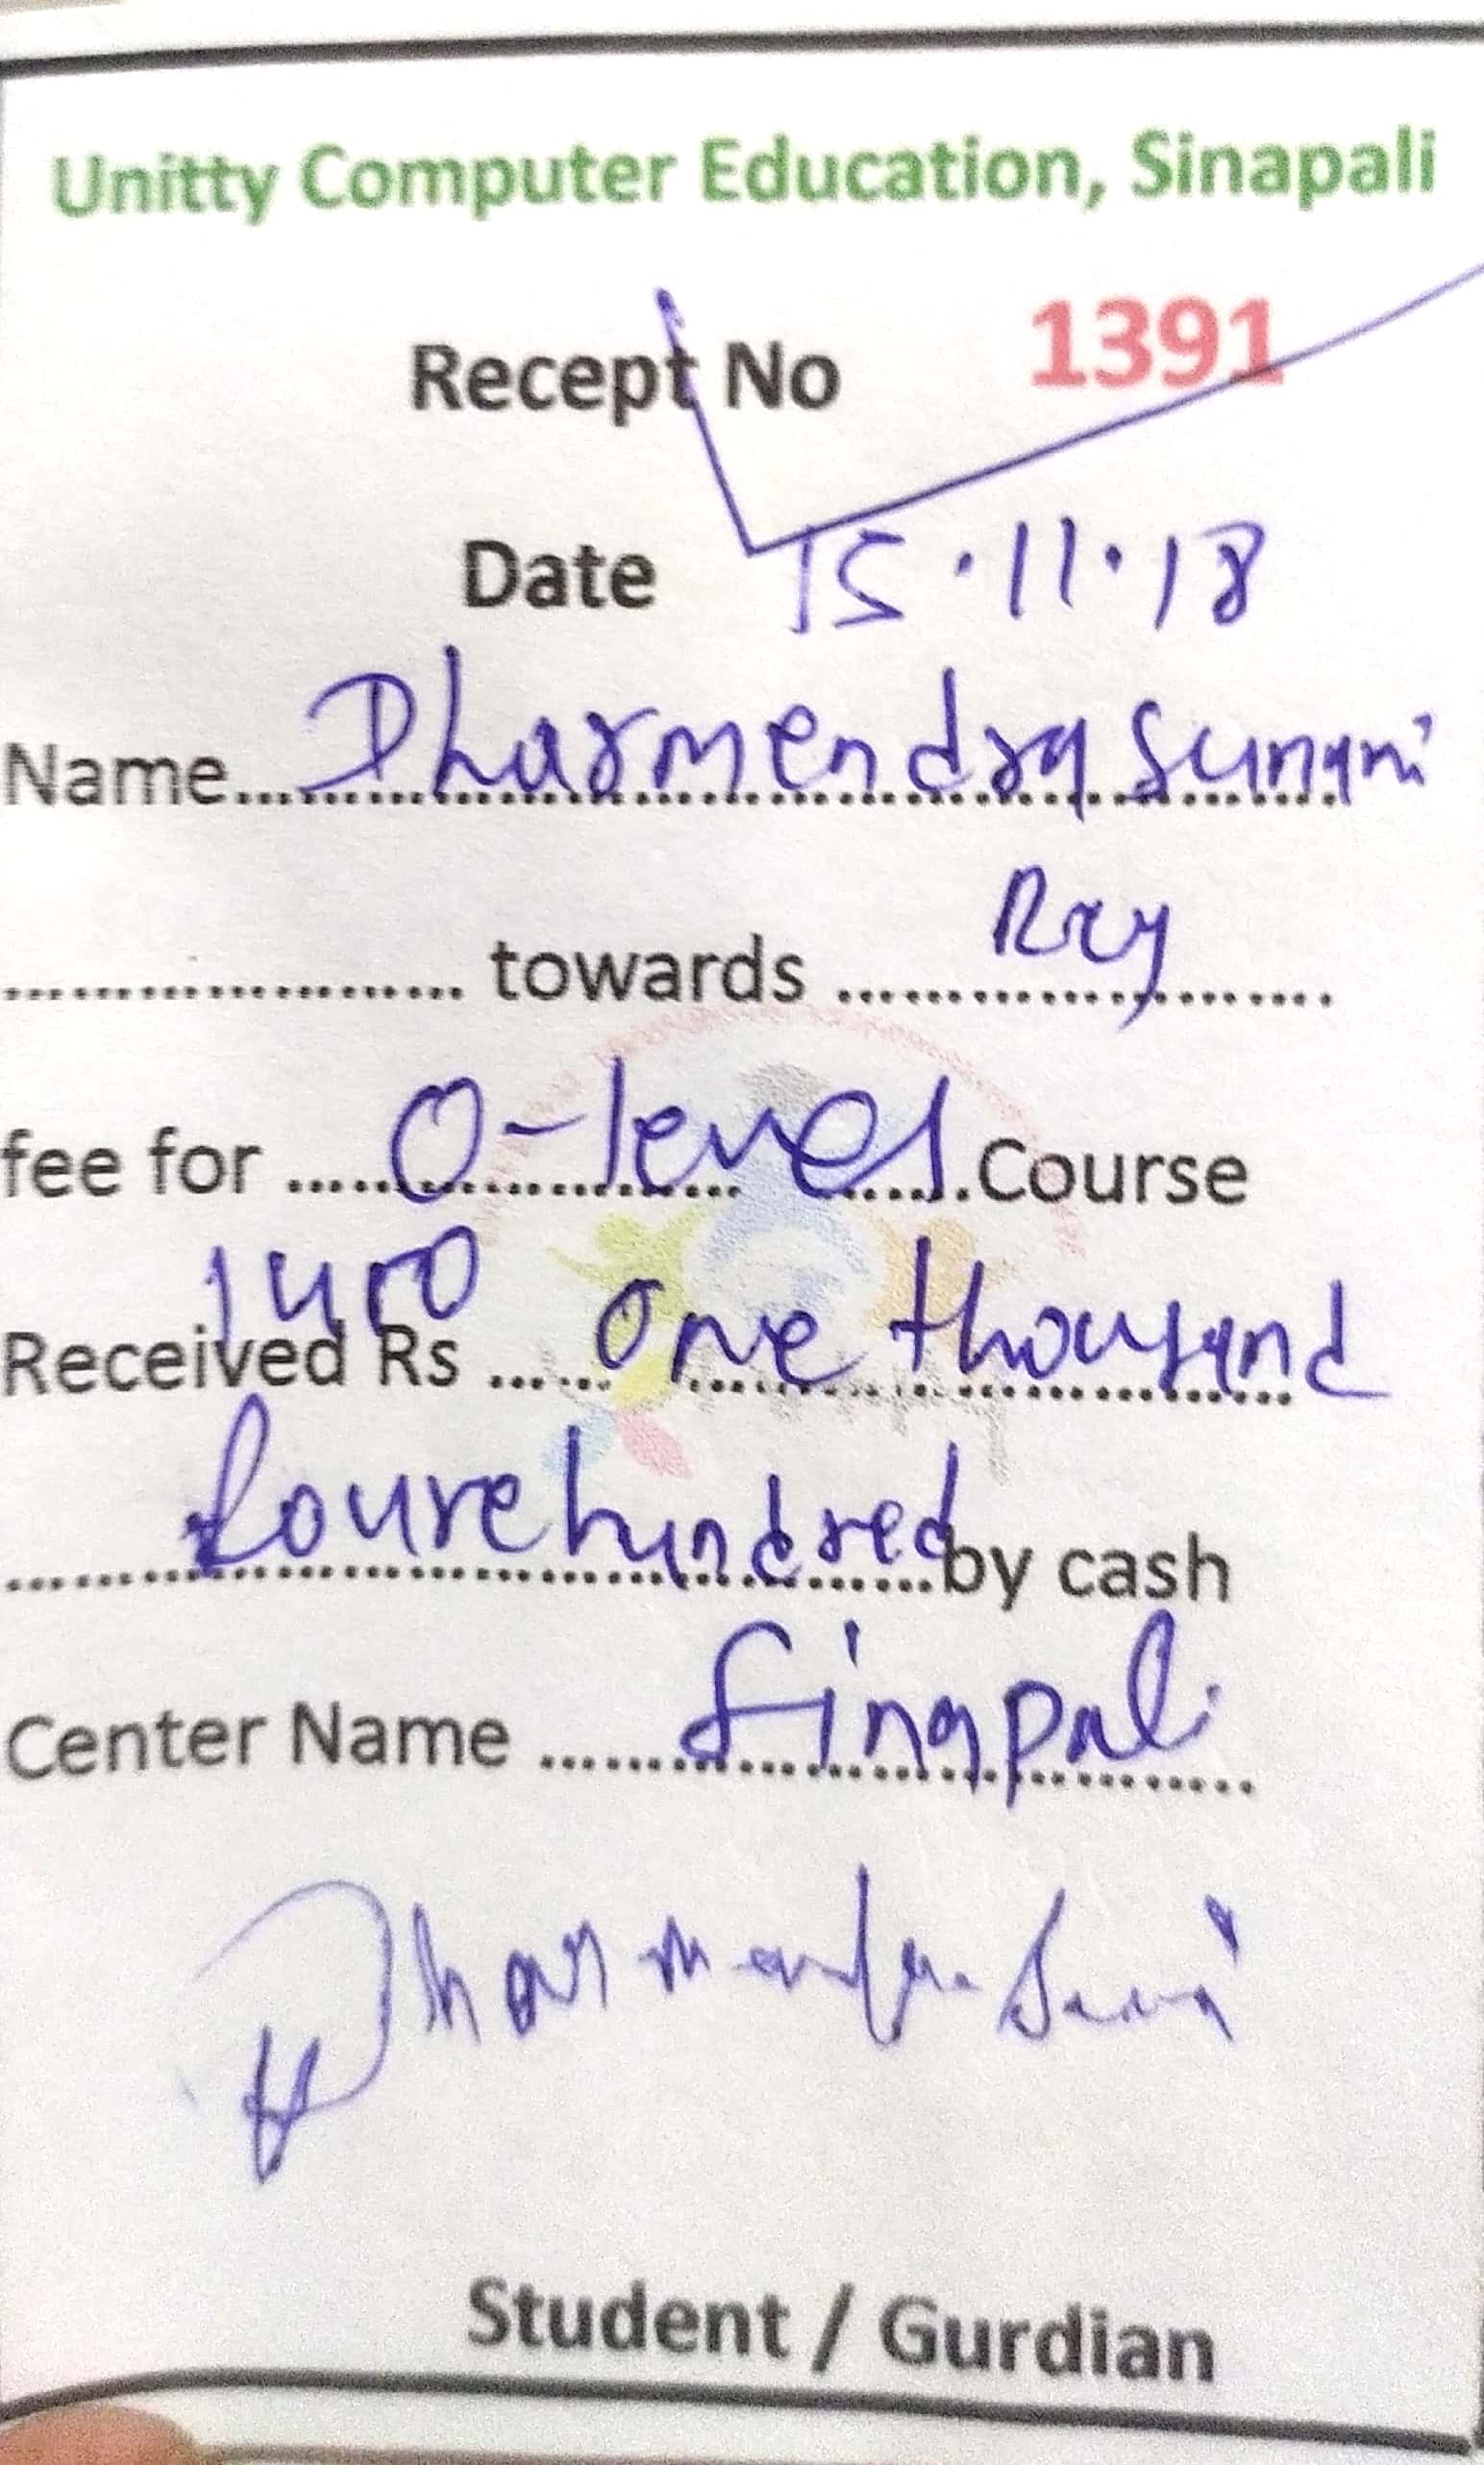 Unitty Computer Education, Sinapali
Recept No 1391
Date 15.11.18
Name........Dharmendra Sunani
.................... towards ....................
fee for ....O-level....Course
1400
Received Rs .... One thousand
........fourehundred....by cash
Center Name ....Sinapali....
Dharmendra Sunani
Student / Gurdian